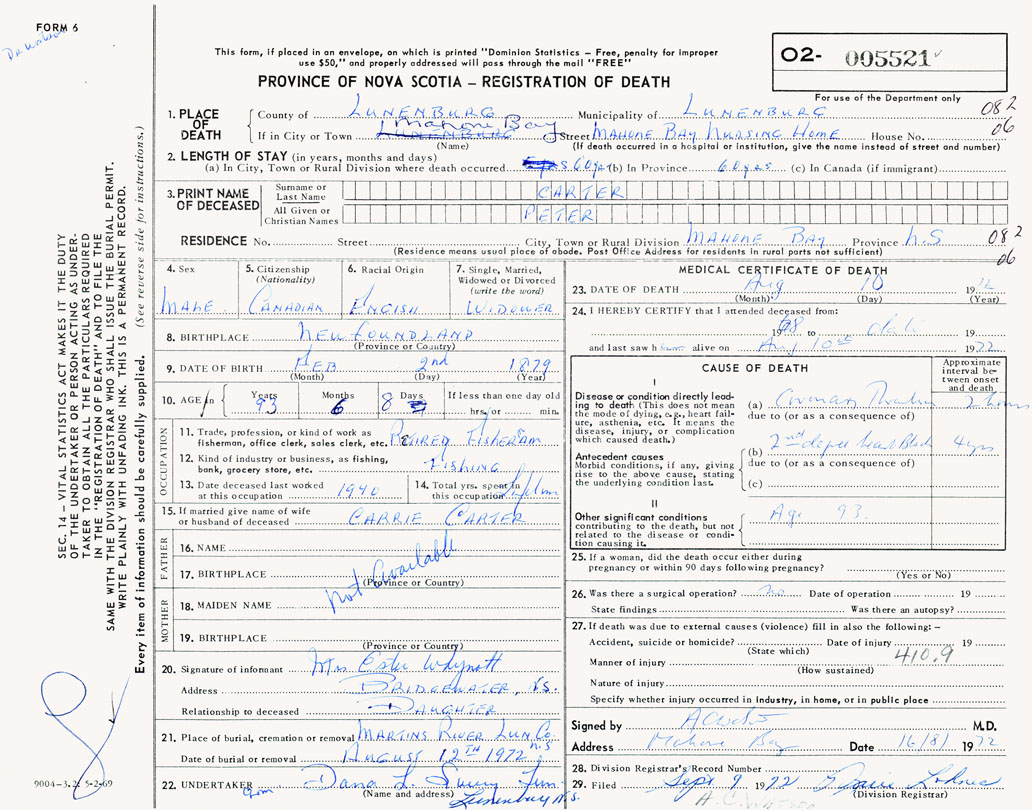 FORM 6
Dr Watson
This form, if placed in an envelope, on which is printed "Dominion Statistics – Free, penalty for improper
use $50," and properly addressed will pass through the mail "FREE"
PROVINCE OF NOVA SCOTIA – REGISTRATION OF DEATH
O2- 005521
For use of the Department only
082
06
1. PLACE OF DEATH
County of LUNENBURG Municipality of LUNENBURG
If in City or Town LUNENBURG Mahone Bay Street MAHONE BAY NURSING HOME House No.
(Name) (If death occurred in a hospital or institution, give the name instead of street and number)
2. LENGTH OF STAY (in years, months and days)
(a) In City, Town or Rural Division where death occurred 60 yrs (b) In Province 60 yrs (c) In Canada (if immigrant)
3. PRINT NAME OF DECEASED
Surname or Last Name CARTER
All Given or Christian Names PETER
RESIDENCE No. Street City, Town or Rural Division MAHONE BAY Province N.S
082
06
(Residence means usual place of abode. Post Office Address for residents in rural parts not sufficient)
4. Sex MALE
5. Citizenship (Nationality) CANADIAN
6. Racial Origin ENGISH
7. Single, Married, Widowed or Divorced (write the word) WIDOWER
8. BIRTHPLACE NEWFOUNDLAND
(Province or Country)
9. DATE OF BIRTH FEB 2nd 1879
(Month) (Day) (Year)
10. AGE Years 93 Months 6 Days 8 If less than one day old hrs. or min.
OCCUPATION
11. Trade, profession, or kind of work as
fisherman, office clerk, sales clerk, etc. RETIRED FISHERAM
12. Kind of industry or business, as fishing,
bank, grocery store, etc. FISHING
13. Date deceased last worked
at this occupation 1940
14. Total yrs. spent in
this occupation
15. If married give name of wife
or husband of deceased CARRIE CARTER
FATHER
16. NAME
17. BIRTHPLACE
(Province or Country)
not available
MOTHER
18. MAIDEN NAME
19. BIRTHPLACE
(Province or Country)
20. Signature of informant Mrs Ester Whynott
Address BRIDGEWATER, N.S.
Relationship to deceased DAUGHTER
21. Place of burial, cremation or removal MARTINS RIVER LUN. CO. N.S
Date of burial or removal AUGUST 12TH 1972
22. UNDERTAKER Dana L. Sweeny
(Name and address) Lunenburg N.S.
MEDICAL CERTIFICATE OF DEATH
23. DATE OF DEATH Aug 10 1972
(Month) (Day) (Year)
24. I HEREBY CERTIFY that I attended deceased from:
19 68 to date 19
and last saw h alive on Aug 10th 1972
CAUSE OF DEATH
Approximate interval between onset and death
I
Disease or condition directly leading to death (This does not mean the mode of dying, e.g., heart failure, asthenia, etc. It means the disease, injury, or complication which caused death.)
(a) 2 hours
due to (or as a consequence of)
(b) 2nd degree heart Block 4 yrs
due to (or as a consequence of)
(c)
Antecedent causes
Morbid conditions, if any, giving rise to the above cause, stating the underlying condition last.
II
Other significant conditions
contributing to the death, but not related to the disease or condition causing it. Age 93.
25. If a woman, did the death occur either during
pregnancy or within 90 days following pregnancy?
(Yes or No)
26. Was there a surgical operation? No Date of operation 19
State findings Was there an autopsy?
27. If death was due to external causes (violence) fill in also the following: –
Accident, suicide or homicide? Date of injury 19
(State which)
410.9
Manner of injury
(How sustained)
Nature of injury
Specify whether injury occurred in industry, in home, or in public place
Signed by M.D.
Address Mahone Bay Date 16/8/ 1972
28. Division Registrar's Record Number
29. Filed Sept 9 1972
(Division Registrar)
A.C. WATSON
SEC. 14 – VITAL STATISTICS ACT MAKES IT THE DUTY
OF THE UNDERTAKER OR PERSON ACTING AS UNDER-
TAKER TO OBTAIN ALL THE PARTICULARS REQUIRED
IN THE "REGISTRATION OF DEATH" AND TO FILE THE
SAME WITH THE DIVISION REGISTRAR WHO SHALL ISSUE THE BURIAL PERMIT.
WRITE PLAINLY WITH UNFADING INK. THIS IS A PERMANENT RECORD.
Every item of information should be carefully supplied. (See reverse side for instructions.)
9004-3.2: 5-2-69